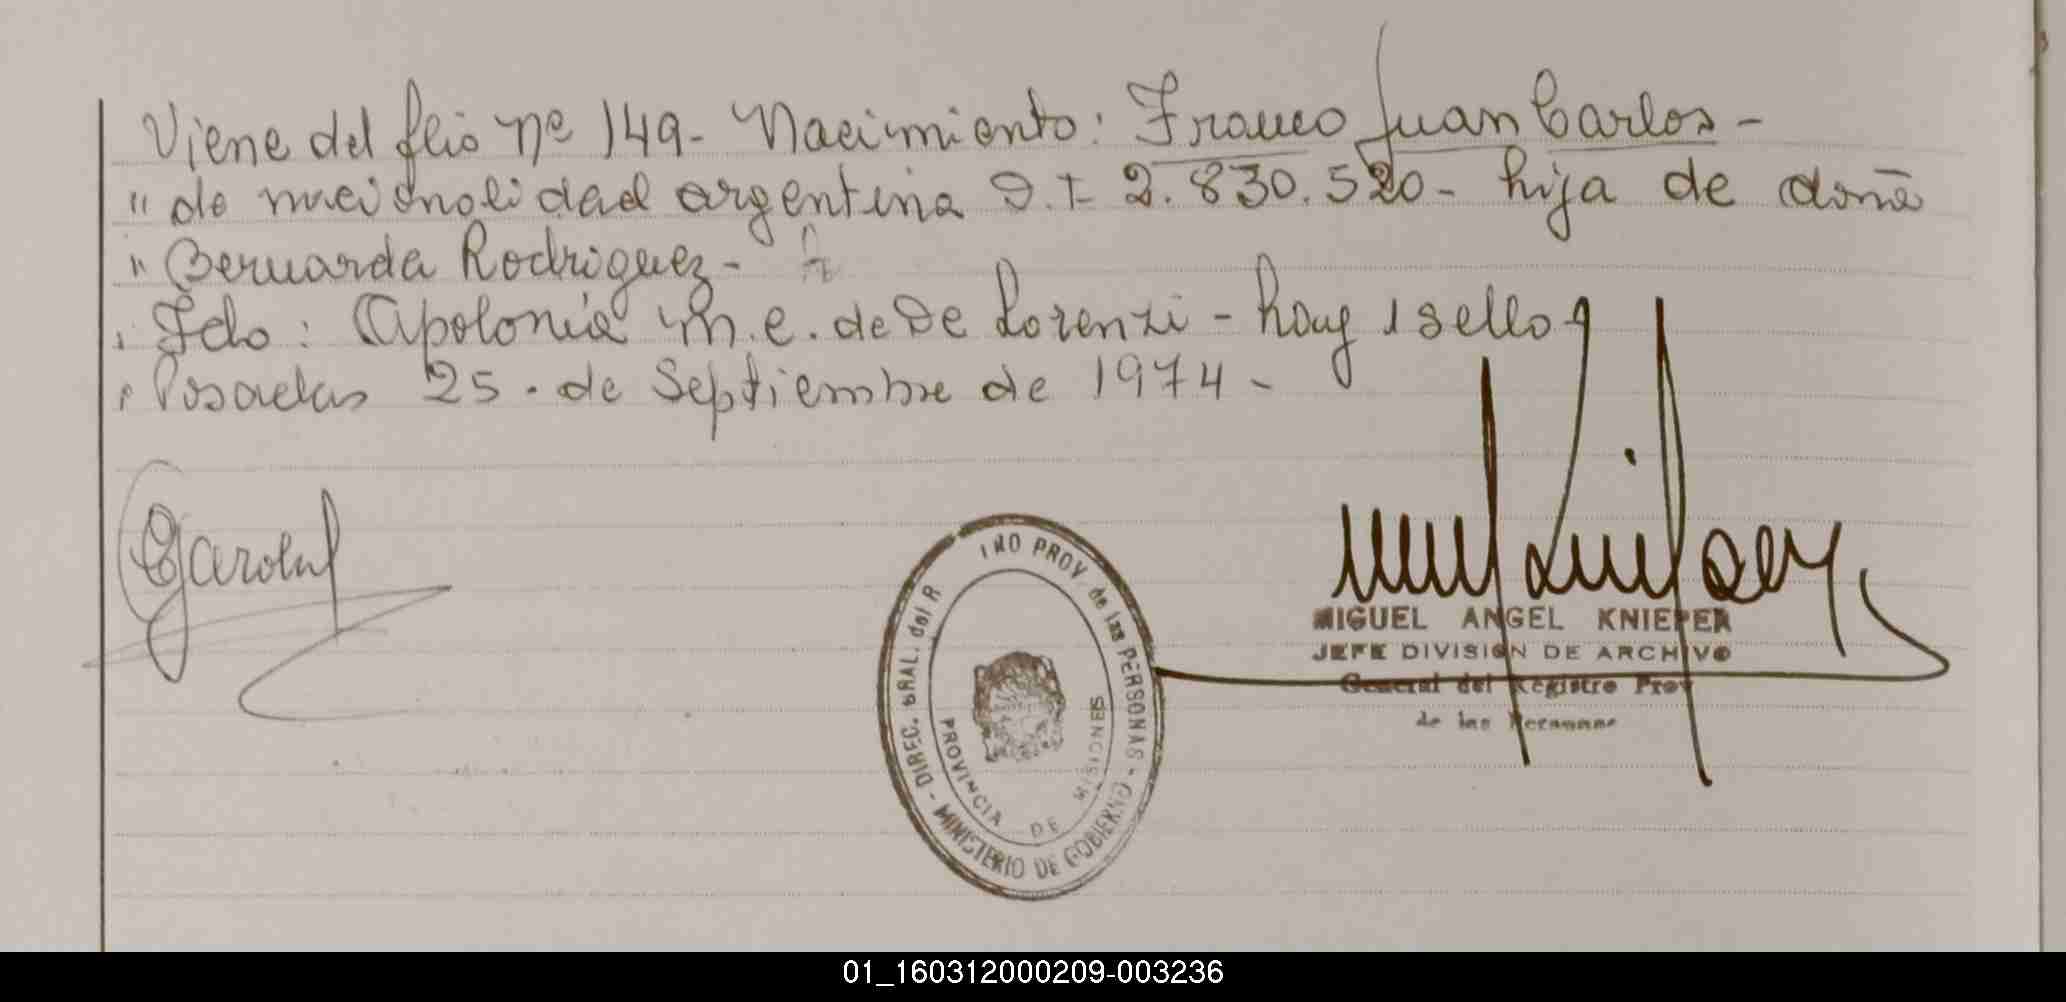 Viene del flio nº 149- Nacimiento: Franco Juan Carlos -
" de nacionalidad argentina D.I. 2.830.520- hija de doña
" Bernarda Rodriguez-
" Fdo: Apolonia M.E. de De Lorenzi - hay 1 sello
" Posadas 25 . de Septiembre de 1974 -
MIGUEL ANGEL KNIEPER
JEFE DIVISION DE ARCHIVO
General del Registro Prov
de las Personas
DIREC. GRAL. del R PROV. de las PERSONAS - MINISTERIO DE GOBIERNO -
PROVINCIA DE MISIONES
01_160312000209-003236